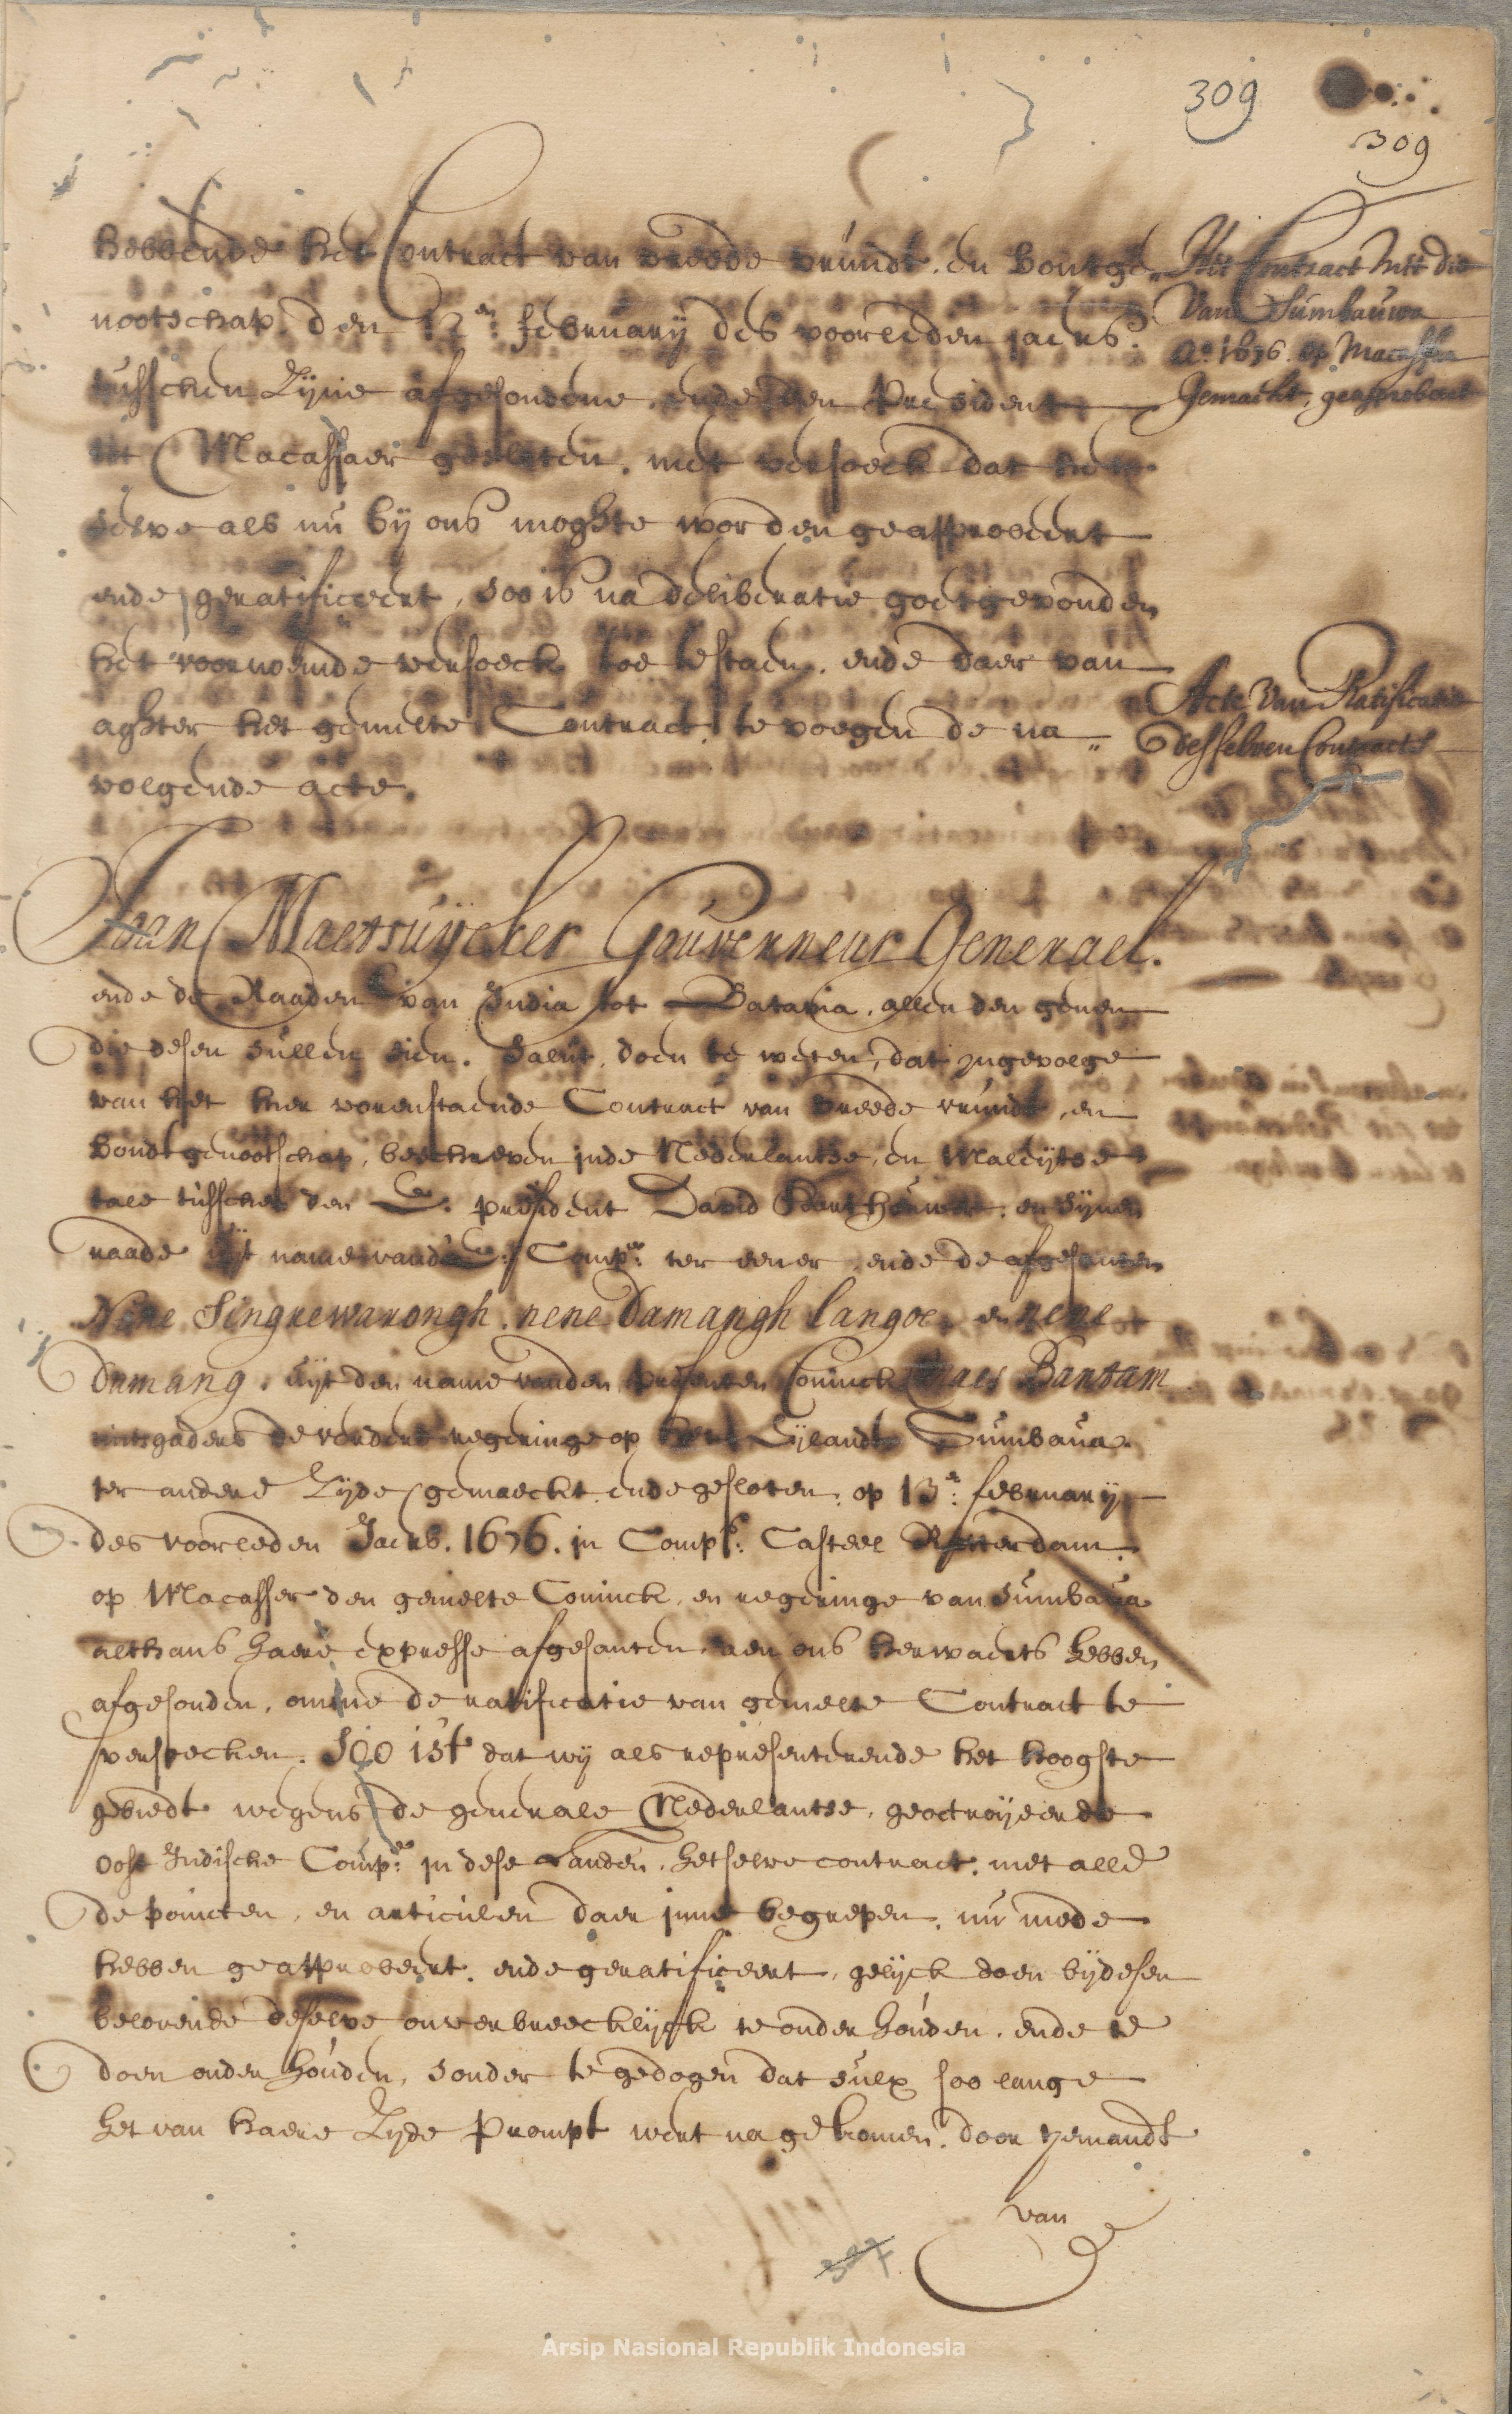 309
309
hebbende het Contract van vreede vrundt. en bontge„
nootschap. den 12en: februarij des voorleden jaers.
tusschen Zijne afgesondene, ende den President
tot Macassaer gesloten. met versoeck dat het
selve als nu bij ons moghte worden geapprobeert
ende geratificeert, soo is na deliberatie goetgevonden
het voornoemde versoeck toe te staen. ende daer van
aghter het gemelte Contract te voegen de na„
volgende acte.
Dit Contract met die
Van Sumbauwa
Ao. 1676. op Macasser
Gemaeckt, geapprobeert
Acte Van Ratificatie
desselven Contracts
Joan Maetsuijcker Gouverneur Generael.
ende de Raaden van India tot Batavia, allen den genen
die desen sullen sien. Salut, doen te weten, dat ingevolge
van het hier vorenstaende Contract van vreede vrundt, en
bondtgenootschap, beschreven inde Nederlantse, en Maleijtse
tale tusschen den E. president David Harthouwer. en sijnen
raade uijt name vande E: Compe: ter eener, ende de afgesanten
Nene Singrewarongh. nene Damangh Langoe, en nene
Damang. uijt den name vanden presenten Coninck Maes Bantam
mitsgaders de verdere regeringe op het Eijlandt Sumbaua.
ter andere Zijde gemaeckt ende gesloten. op 13e: februarij
des voorleden Jaers. 1676. in Comps: Casteel Rotterdam
op Macasser den gemelte Coninck, en regeringe van Sumbaua
althans haere expresse afgesanten. aen ons herwaerts hebben
afgesonden, omme de ratificatie van gemelte Contract te
versoecken. Soo ist dat wij als representerende het hoogste
gebiedt wegens de generale Nederlantse, geoctroijeerde
Oost Indische Compe: in dese Landen. hetselve contract. met alle
de poincten, en articulen daer inne begrepen. nu mede
hebben geapprobeert. ende geratificeert, gelijck doen bijdesen
belovende deselve onverbreecklijck te onderhouden. ende te
doen onderhouden, sonder te gedogen dat sulx soo lange
het van haere Zijde prompt wert nagekomen. door ijemandt
van
Arsip Nasional Republik Indonesia